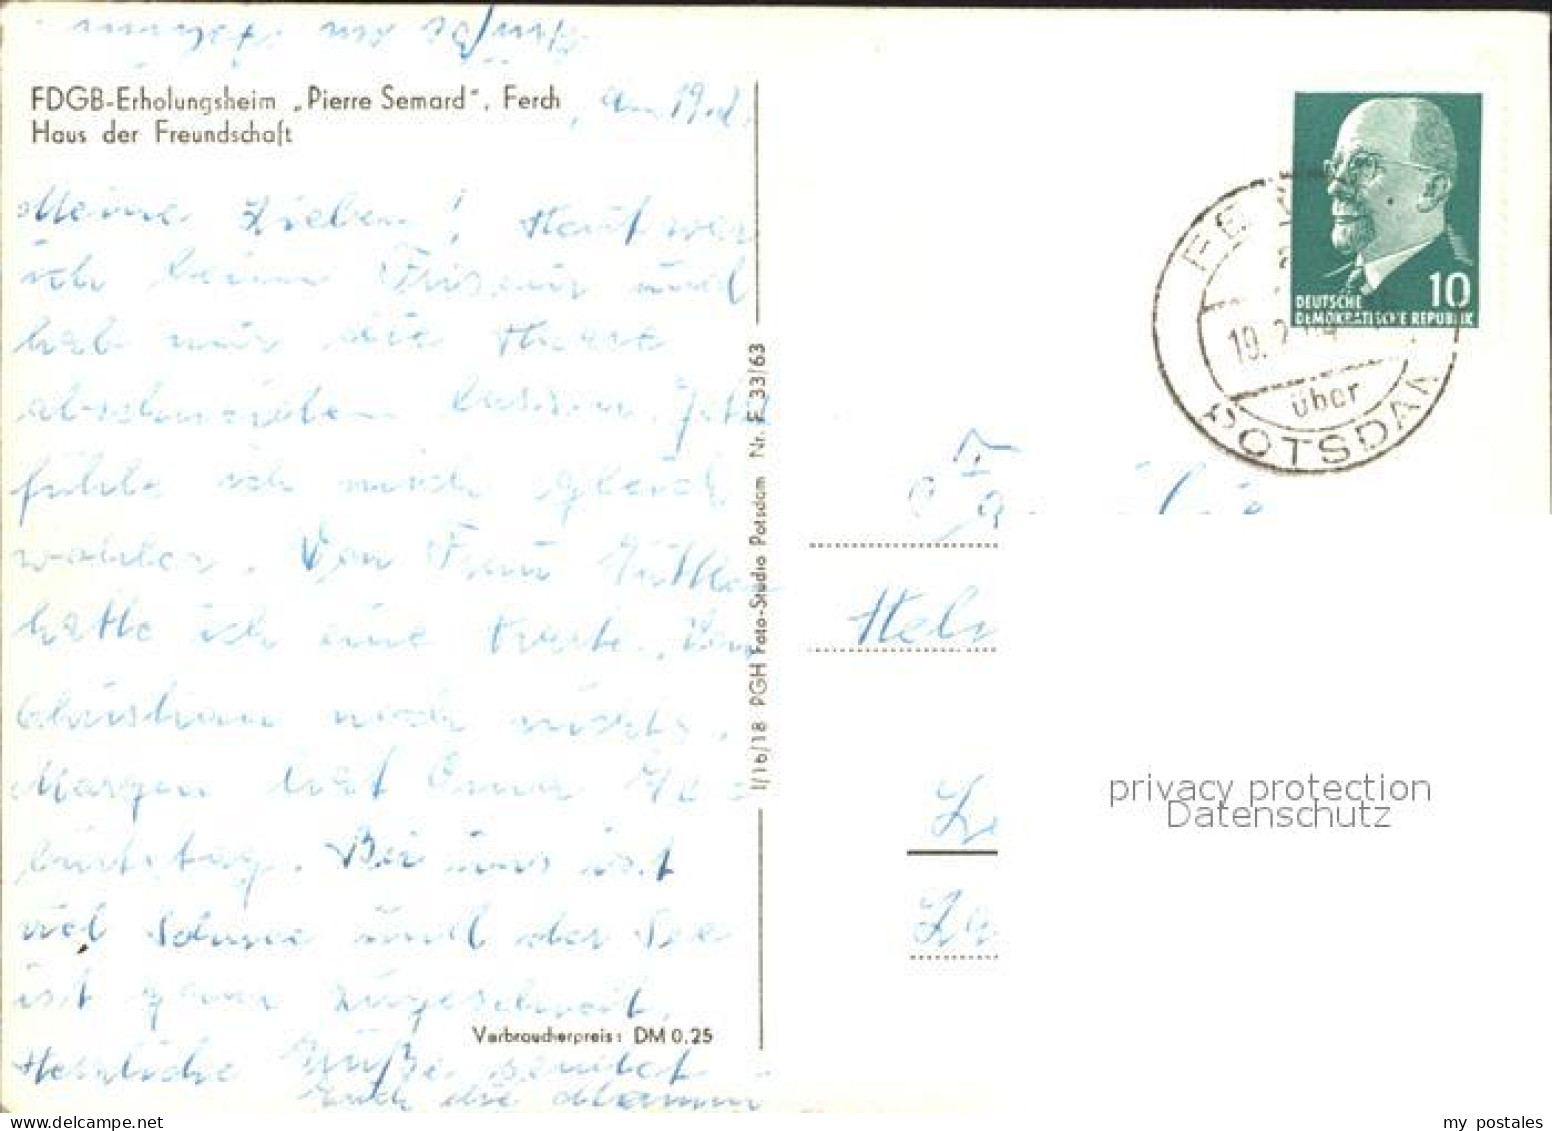 Grüße an
FDGB-Erholungsheim „Pierre Semard“, Ferch
Haus der Freundschaft
, am 19.2.
Meine Lieben! Heut war
ich beim Friseur und
hab mir die Haare
abschneiden lassen. Jetzt
fühle ich mich gleich
wohler. Von Frau
hatte ich eine Karte. Von
Christian noch nichts.
Morgen hat Oma Ge=
burtstag. Bei uns ist
viel Schnee und der See
ist ganz zugeschneit.
Verbraucherpreis: DM 0.25
Herzliche Grüße sendet
Euch die Mammi
I/16/18 PGH Foto-Studio Potsdam Nr. F 33/63
10
DEUTSCHE
DEMOKRATISCHE REPUBLIK
19. 2.
über
POTSDAM
privacy protection
Datenschutz
my postales